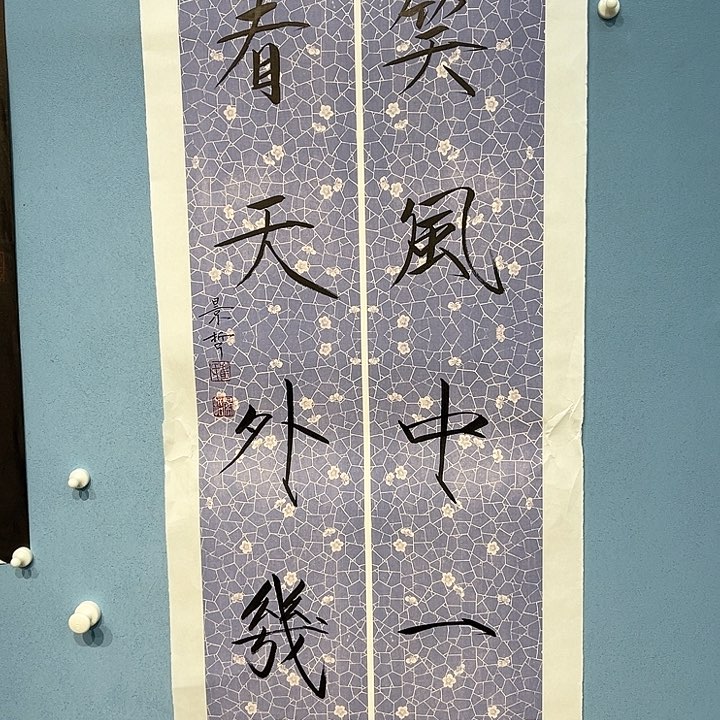 笑風中一
看天外幾
景哲